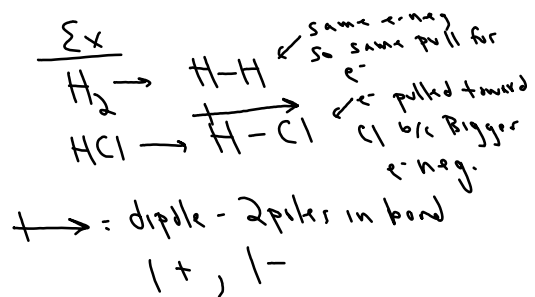 Ex
H2 → H-H same e-neg
so same pull for
e-
HCl → H-Cl e- pulled toward
Cl b/c Bigger
e-neg.
= dipole - 2 poles in bond
1+, 1-